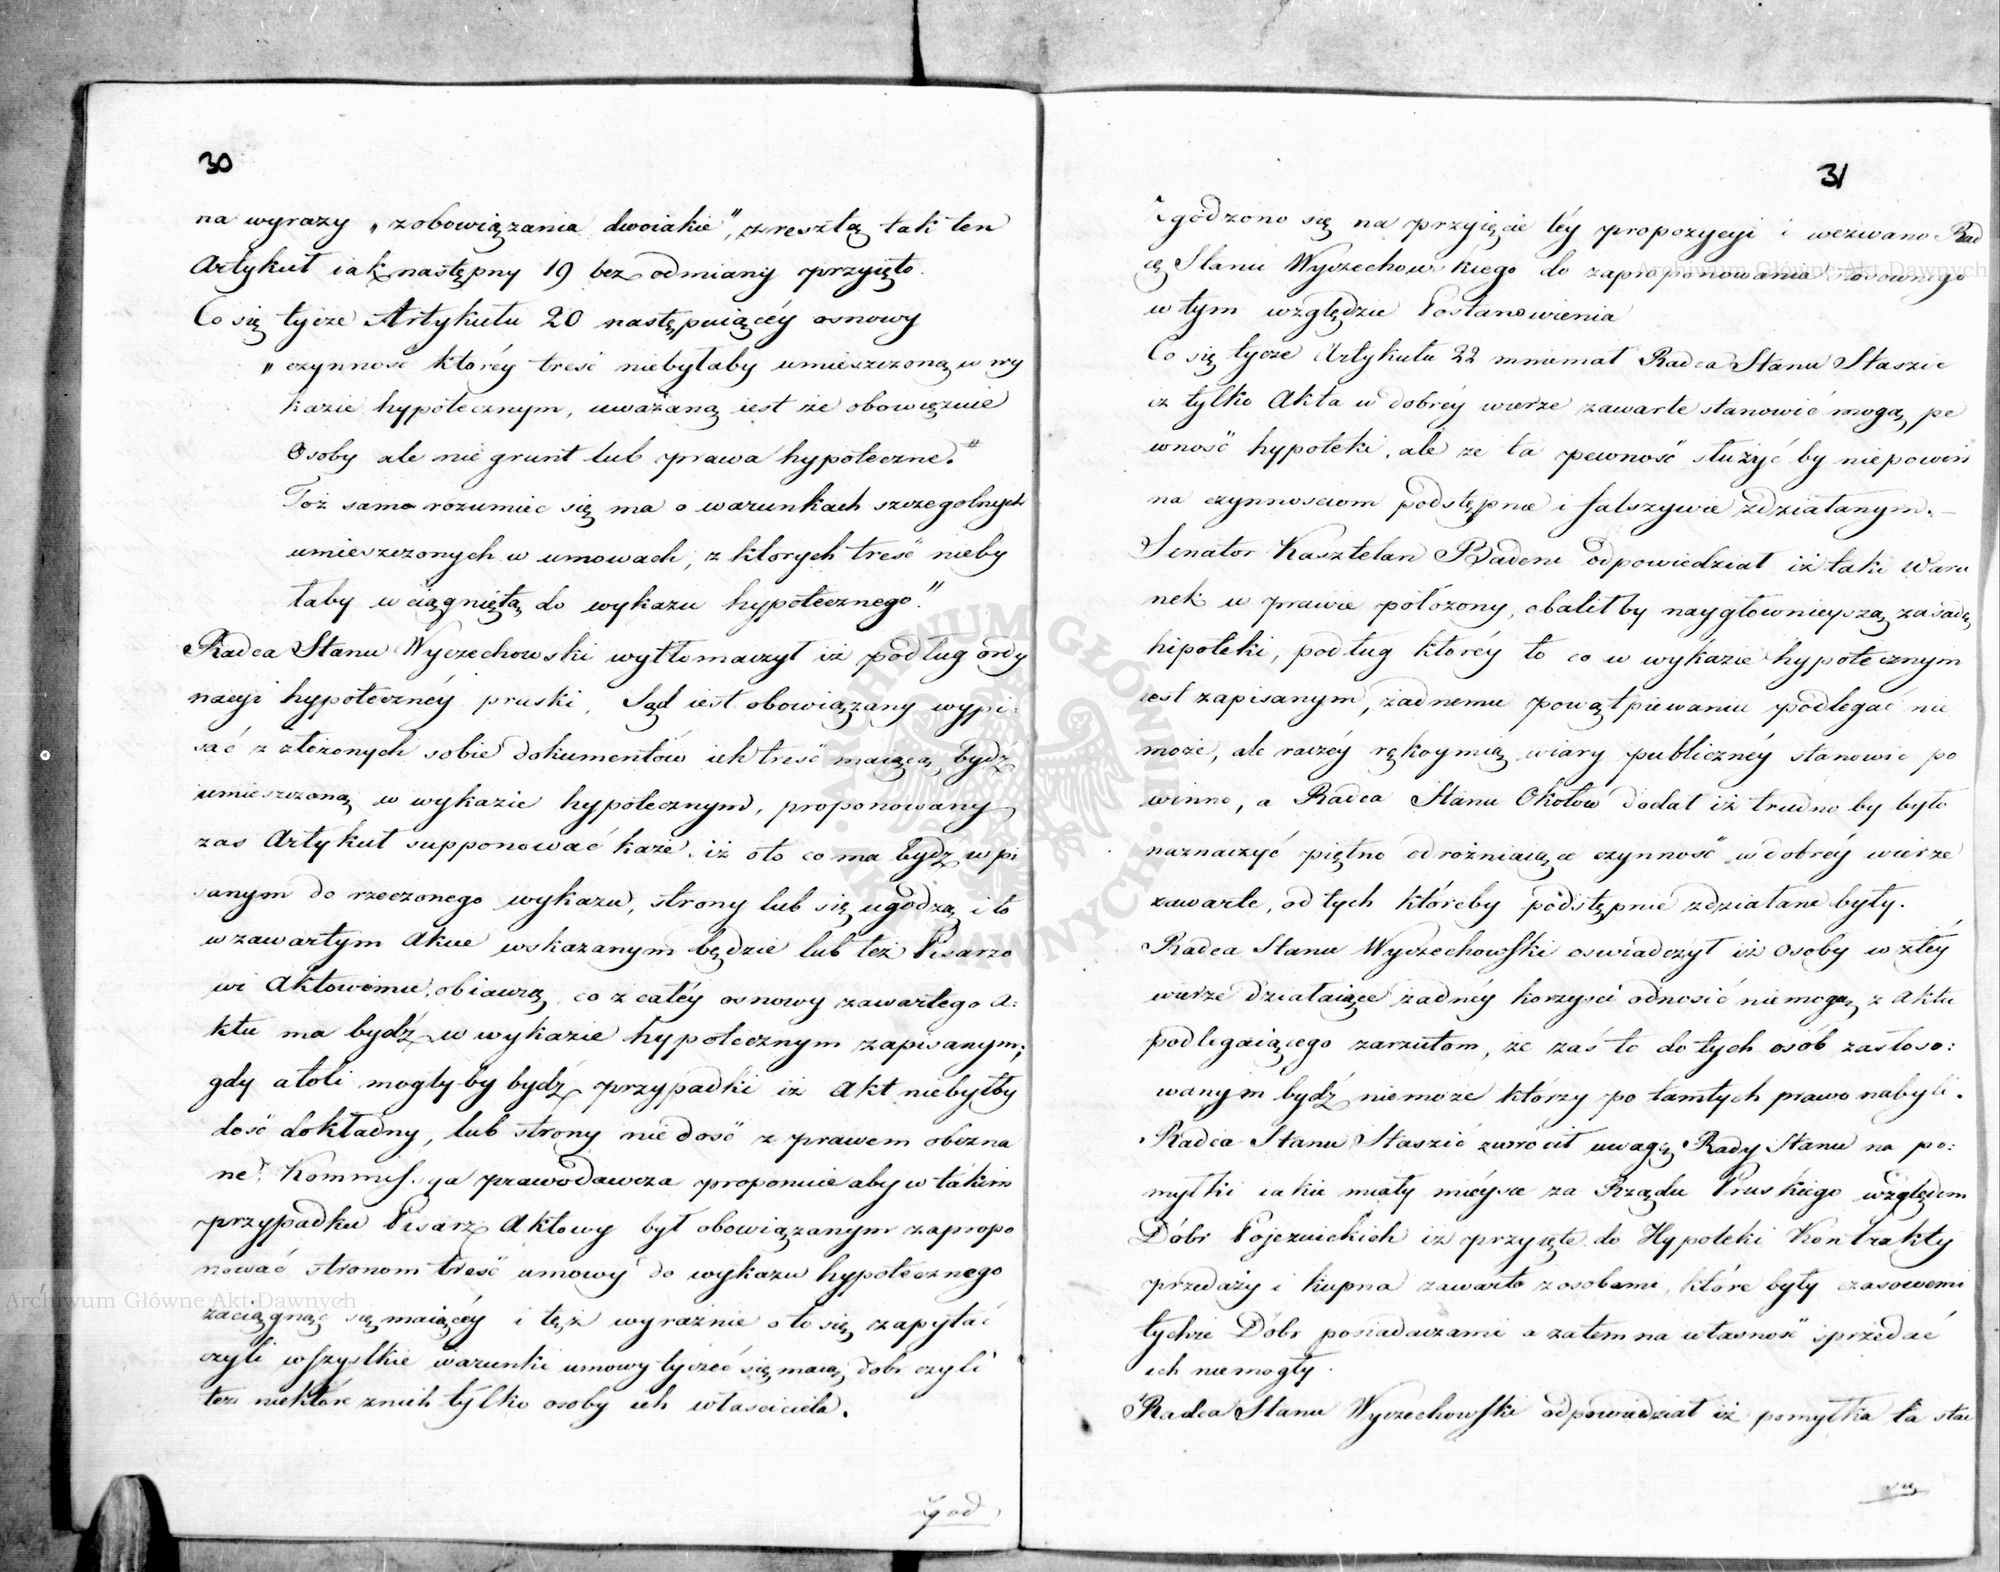 30
na wyrazy „zobowiązania dwoiakie”, zresztą tak ten
Artykuł iak następny 19 bez odmiany przyięto.
Co się tycze Artykułu 20 następuiącéy osnowy
„czynność któréy treść niebyłaby umieszczoną w wy
kazie hypotecznym, uważaną iest że obowięzuie
Osoby ale nie grunt lub prawa hypoteczne.”
Toż samo rozumieć się ma o warunkach szczegolnych
umieszczonych w umowach, z ktorych treść nieby
łaby wciągniętą do wykazu hypotecznego.”
Radca Stanu Wyczechowski wytłomaczył iż podług ordy
nacyi hypotecznéy pruski, Sąd iest obowiązany wypi:
sać z złożonych sobie dokumentów ich treść maiącą bydź
umieszczoną w wykazie hypotecznym, proponowany
zas Artykuł supponować każe, iż oto co ma bydź wpi
sanym do rzeczonego wykazu, strony lub się ugodzą i to
w zawartym Akcie wskazanym będzie lub też Pisarzo
wi Aktowemu, obiawią, co z całéy osnowy zawartego A:
ktu ma bydź w wykazie hypotecznym zapisanym;
gdy atoli mogły by bydź przypadki iż Akt niebyłby
dość dokładny, lub strony nie dość z prawem obezna
ne, Kommissya prawodawcza proponuie aby w takim
przypadku Pisarz Aktowy był obowiązanym zapropo
nować stronom treść umowy do wykazu hypotecznego
zaciągnąć się maiącéy i też wyraznie o to się zapytać
czyli wszystkie warunki umowy tyczeć się maią dobr czyli
też niektóre z nich tylko osoby ich własciciela.
Zgod
31
Zgodzono się na przyięcie téy propozycyi i wezwano Rad
cę Stanu Wyczechowskiego do zaproponowania stosownego
w tym względzie Postanowienia
Co się tycze Artykułu 22 mniemał Radca Stanu Staszic
iż tylko Akta w dobréy wierze zawarte stanowić mogą pe
wność hypoteki, ale ze ta pewność służyć by niepowin
na czynnosciom podstępnie i fałszywie zdziałanym.
Senator Kasztelan Badeni odpowiedział iż taki Waru
nek w prawie położony, obalił by naygłownieyszą zasadę
hipoteki, podług któréy to co w wykazie hypotecznym
iest zapisanym, żadnemu powątpiewaniu podlegać nie
może, ale raczéy rękoymią wiary publicznéy stanowić po
winno, a Radca Stanu Okołow dodał iż trudno by było
naznaczyć piętno odrożniaiące czynność w dobréy wierze
zawarte, od tych któreby podstępnie zdziałane były.
Radca Stanu Wyczechowski oswiadczył iż Osoby w złéy
wierze działaiące żadnéy korzysci odnosić nie mogą z Aktu
podlegaiącego zarzutom, że zaś to do tych osób zastoso:
wanym bydź niemoże którzy po tamtych prawo nabyli.
Radca Stanu Staszic zwrócił uwagę Rady Stanu na po:
myłki iakie miały mieysce za Rządu Pruskiego względem
Dóbr Pojezuickich iż przyięte do Hypoteki Kontrakty
przedaży i kupna zawarto z osobami, które były czasowemi
tychże Dóbr posiadaczami a zatem na własność sprzedać
ich niemogły.
Radca Stanu Wyczechowski odpowiedział iż pomyłka ta stac
Archiwum Główne Akt Dawnych
Archiwum Główne Akt Dawnych
ARCHIWUM GŁÓWNE AKT DAWNYCH